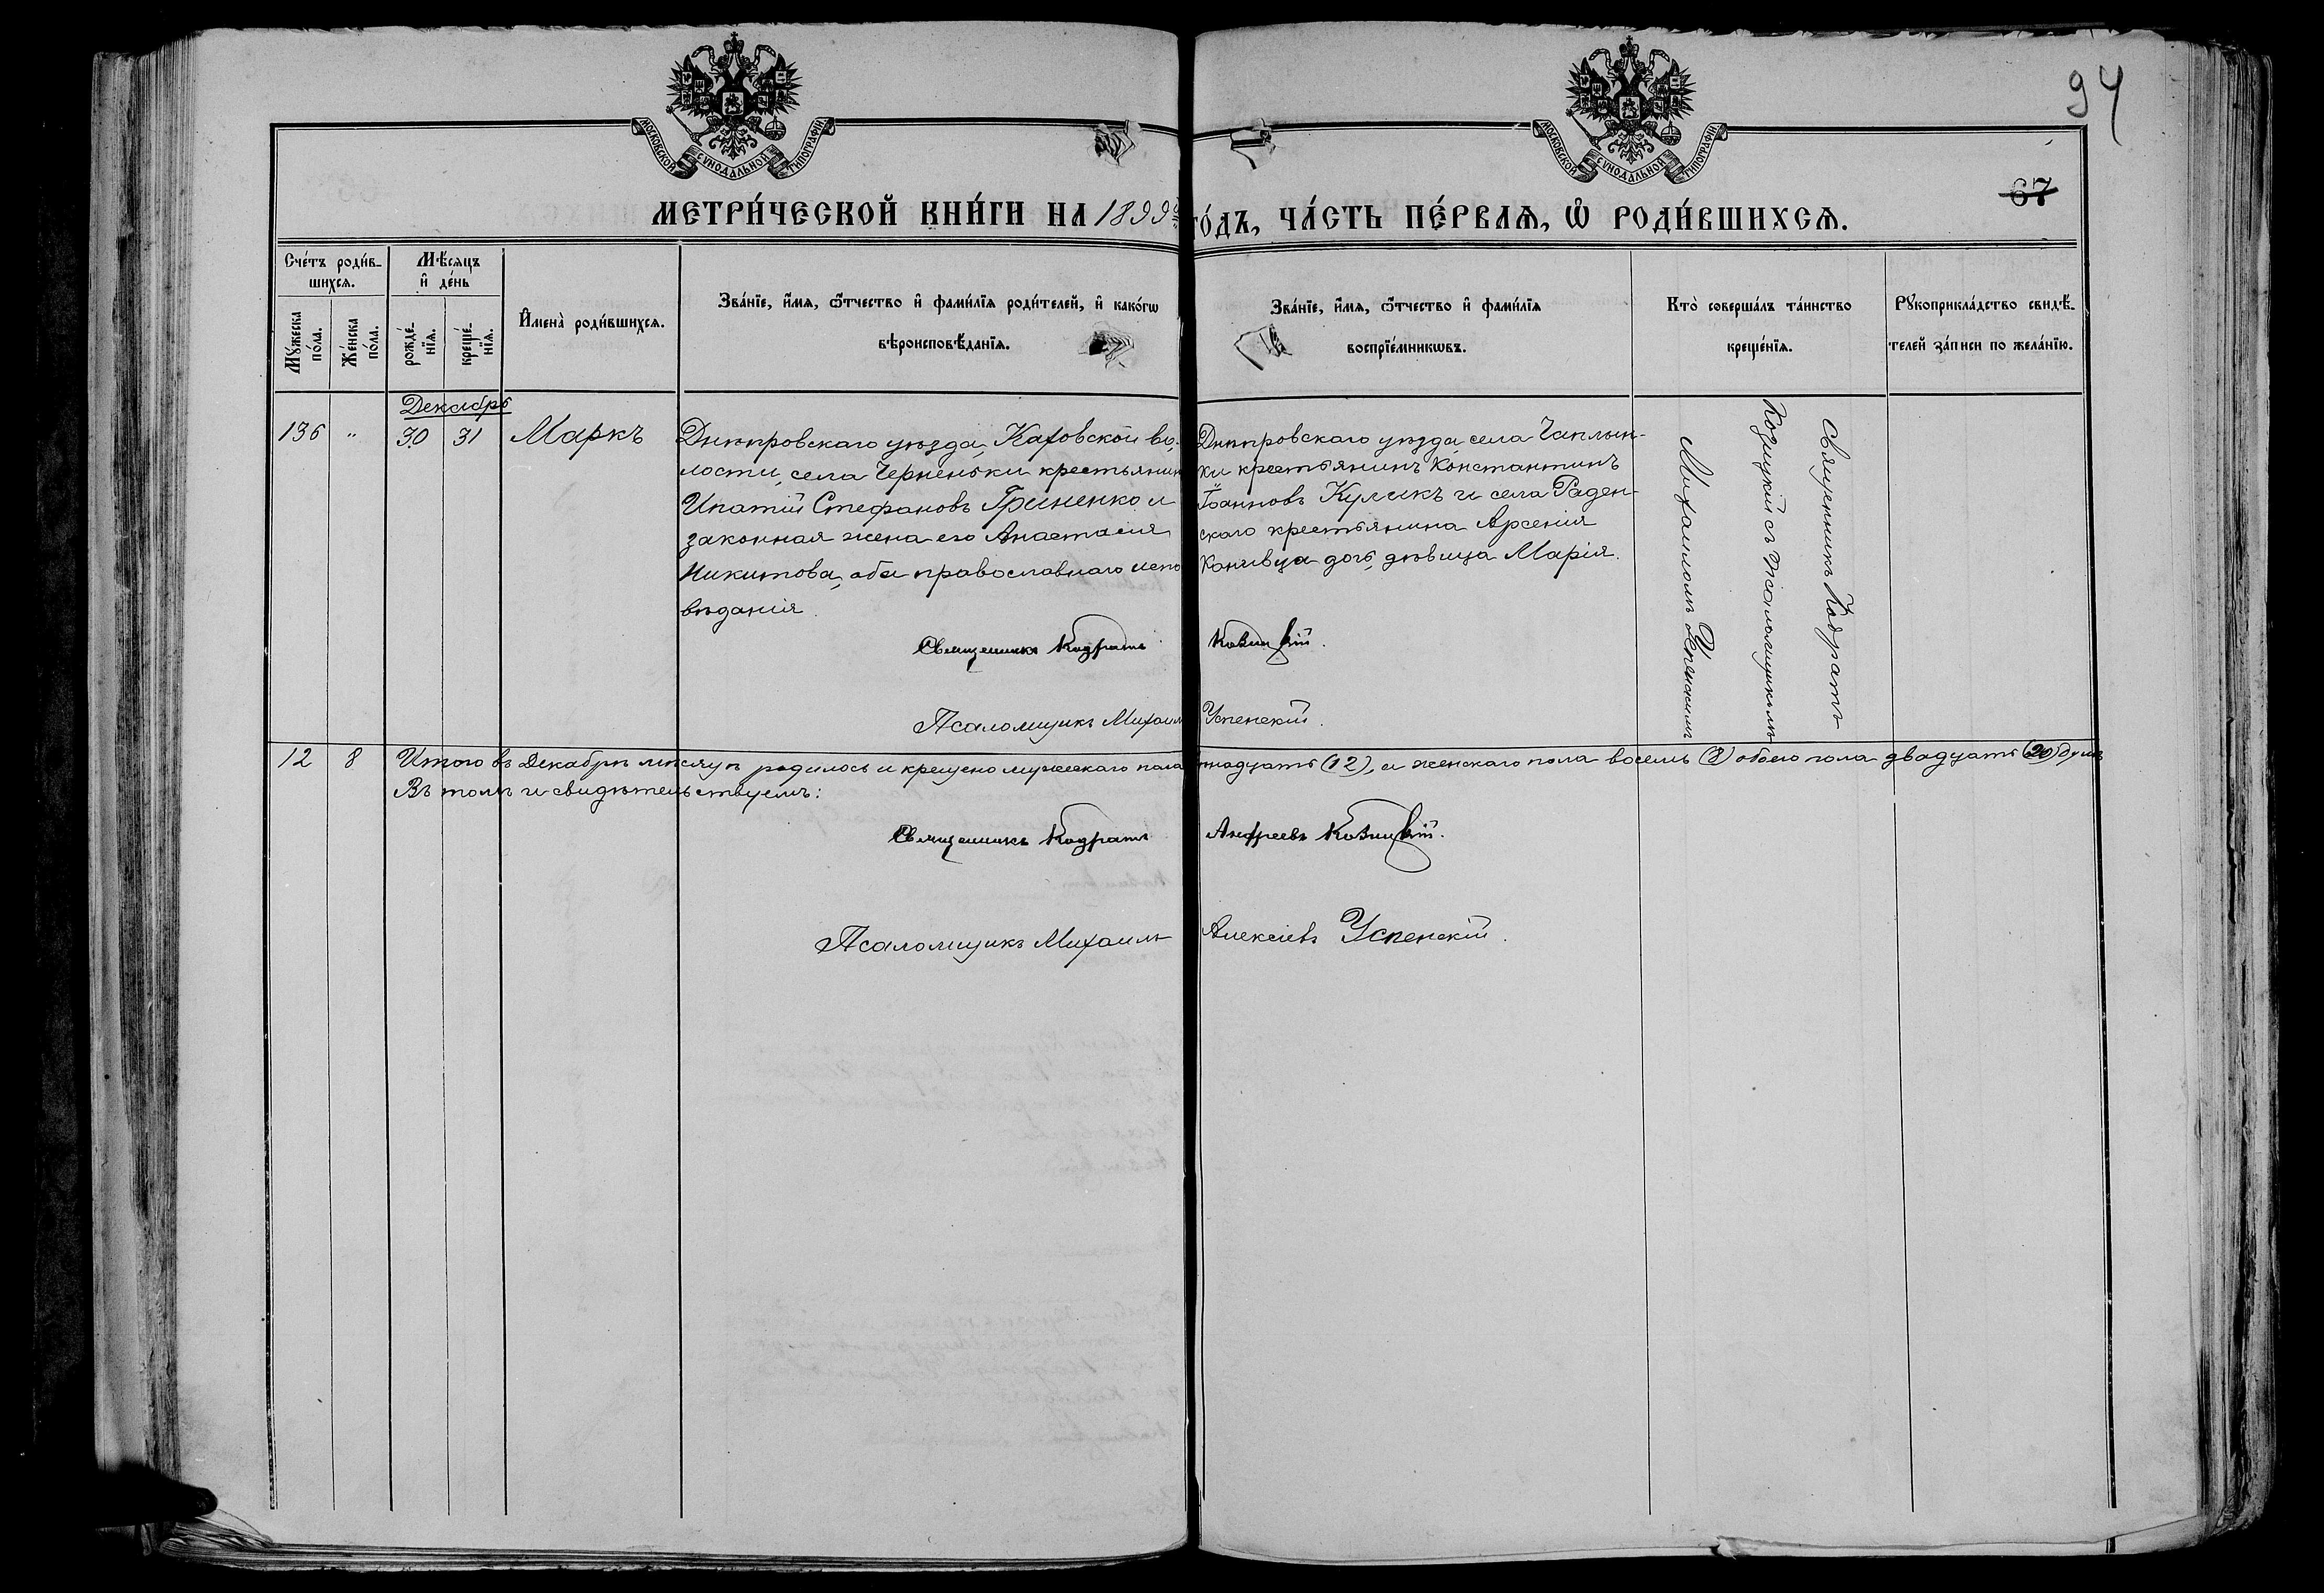 94
МОСКОВСКОЙ СУНОДАЛЬНОЙ ТИПОГРАФІИ
МОСКОВСКОЙ СУНОДАЛЬНОЙ ТИПОГРАФІИ
67
МЕТРИ́ЧЕСКОЙ КНИ́ГИ НА 1899 ГО́ДЪ, ЧА́СТЬ ПЕ́РВАѦ, Ѡ҆ РОДИ́ВШИХСѦ.
Сче́тъ роди́в-
шихсѧ.
Мꙋ́жеска
по́ла.
Же́нска
по́ла.
Мѣ́сѧцъ
и҆ де́нь
рожде́-
нїѧ.
креще́-
нїѧ.
И҆мена̀ роди́вшихсѧ.
Зва́нїе, и҆́мѧ, ѻ҆́тчество и҆ фами́лїѧ роди́телей, и҆ како́гѡ
вѣроисповѣ́данїѧ.
Зва́нїе, и҆́мѧ, ѻ҆́тчество и҆ фами́лїѧ
воспрїе́мникѡвъ.
Кто̀ соверша́лъ та́инство
креще́нїѧ.
Рꙋкоприкла́дство свидѣ́-
телей за́писи по жела́нїю.
Декабрь
136 " 30 31 Маркъ
Днѣпровскаго уѣзда, Каховской во-
лости, села Черненьки крестьянин
Ипатій Стефановъ Гриненко и
законная жена его Анастасія
Никитова, оба православнаго испо
вѣданія.
Днѣпровскаго уѣзда, села Чаплын-
ки крестьянинъ Константинъ
Іоанновъ Куликъ и села Раден-
скаго крестьянина Арсенія
Канивца дочь, дѣвица Марія.
Священникъ Кодратъ
Козицкій съ псаломщикомъ
Михаиломъ Успенскимъ
Священникъ Кодратъ Козицкій.
Псаломщикъ Михаилъ Успенскій.
12 8 Итого въ Декабрѣ мѣсяцѣ родилось и крещено мужескаго пола надцать (12), а женскаго пола восемь (8) обоего пола двадцать (20) душъ
Въ томъ и свидѣтельствуемъ:
Священникъ Кодратъ Андреевъ Козицкій.
Псаломщикъ Михаилъ Алексіевъ Успенскій.